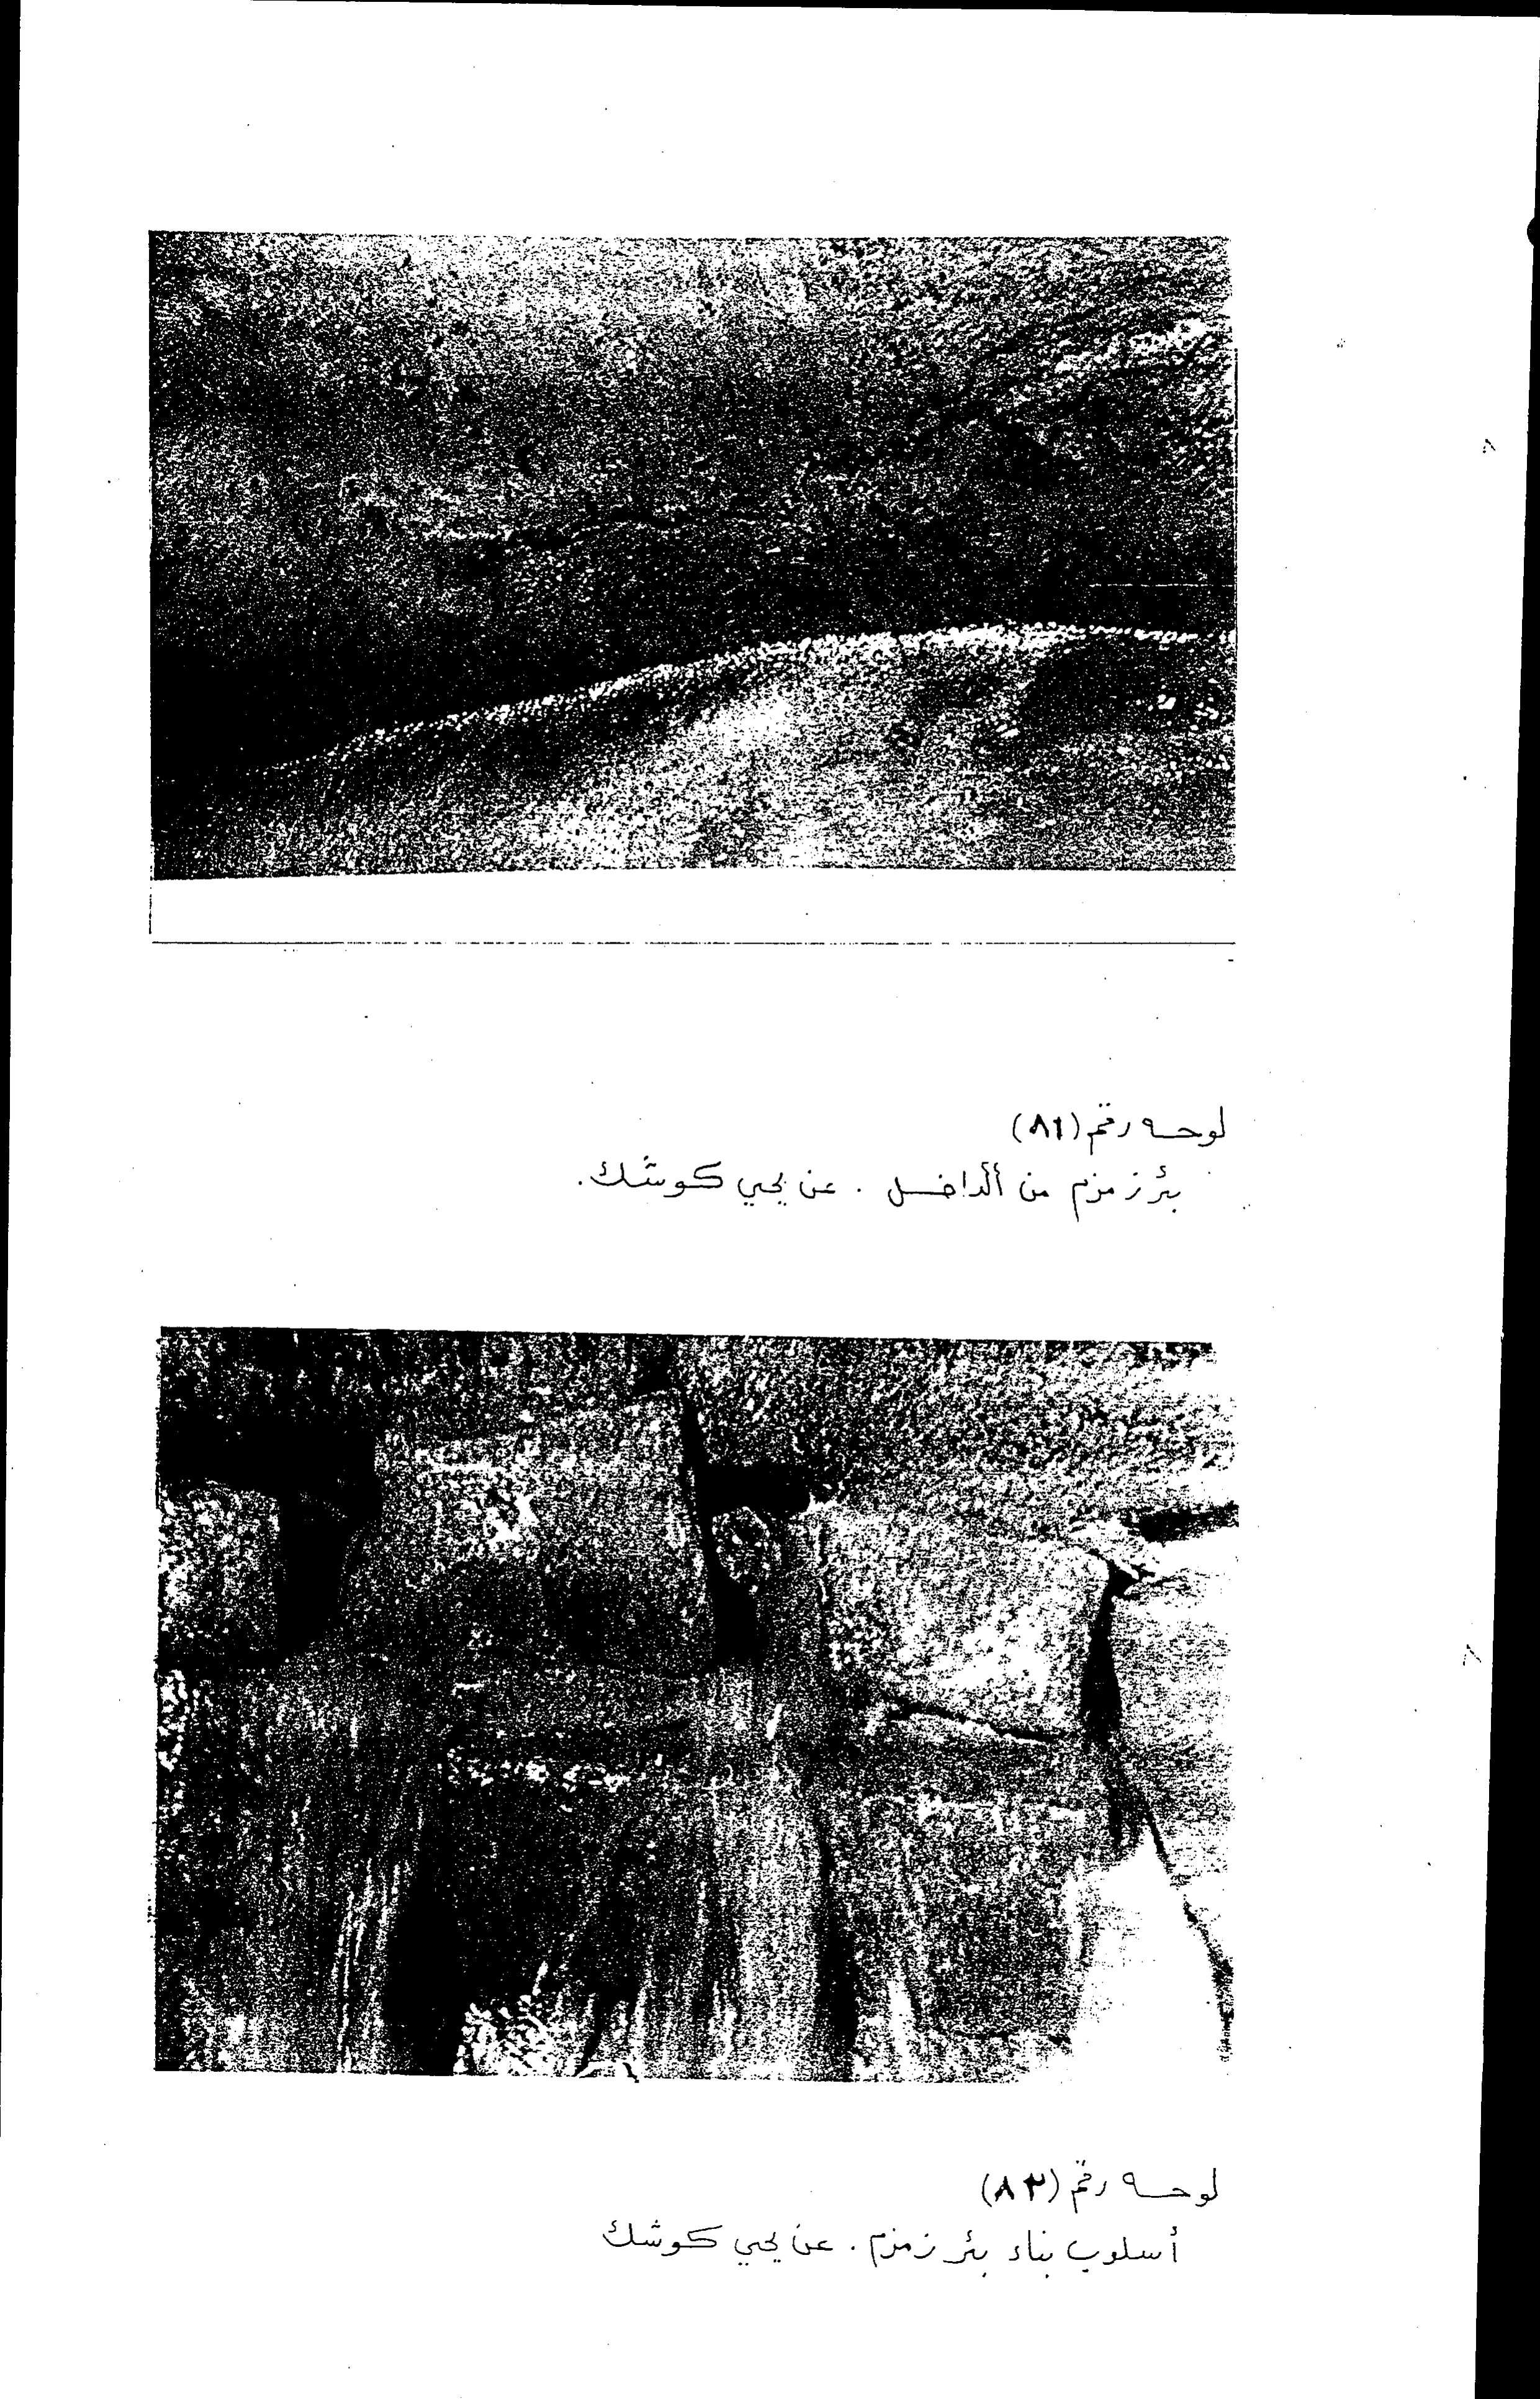 لوحه رقم (٨١)
بئر زمزم من الداخل . عن يحي كوشك .
لوحه رقم (٨٢)
أسلوب بناء بئر زمزم . عن يحي كوشك